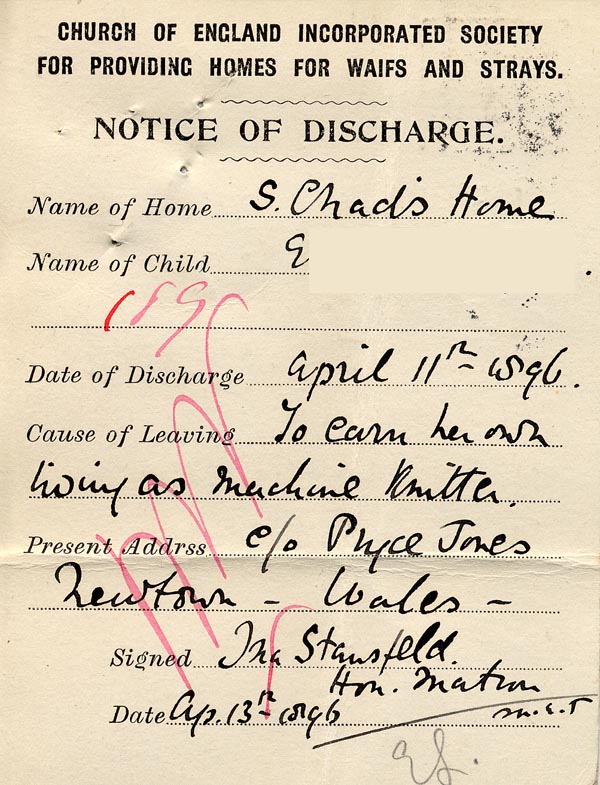 CHURCH OF ENGLAND INCORPORATED SOCIETY
FOR PROVIDING HOMES FOR WAIFS AND STRAYS.
NOTICE OF DISCHARGE.
Name of Home S. Chad's Home
Name of Child E
Date of Discharge April 11th 1896.
Cause of Leaving To earn her own
living as Machine Knitter.
Present Addrss c/o Pryce Jones
Newtown - Wales -
Signed Ina Stansfeld.
Hon. Matron
Date Ap. 13th 1896